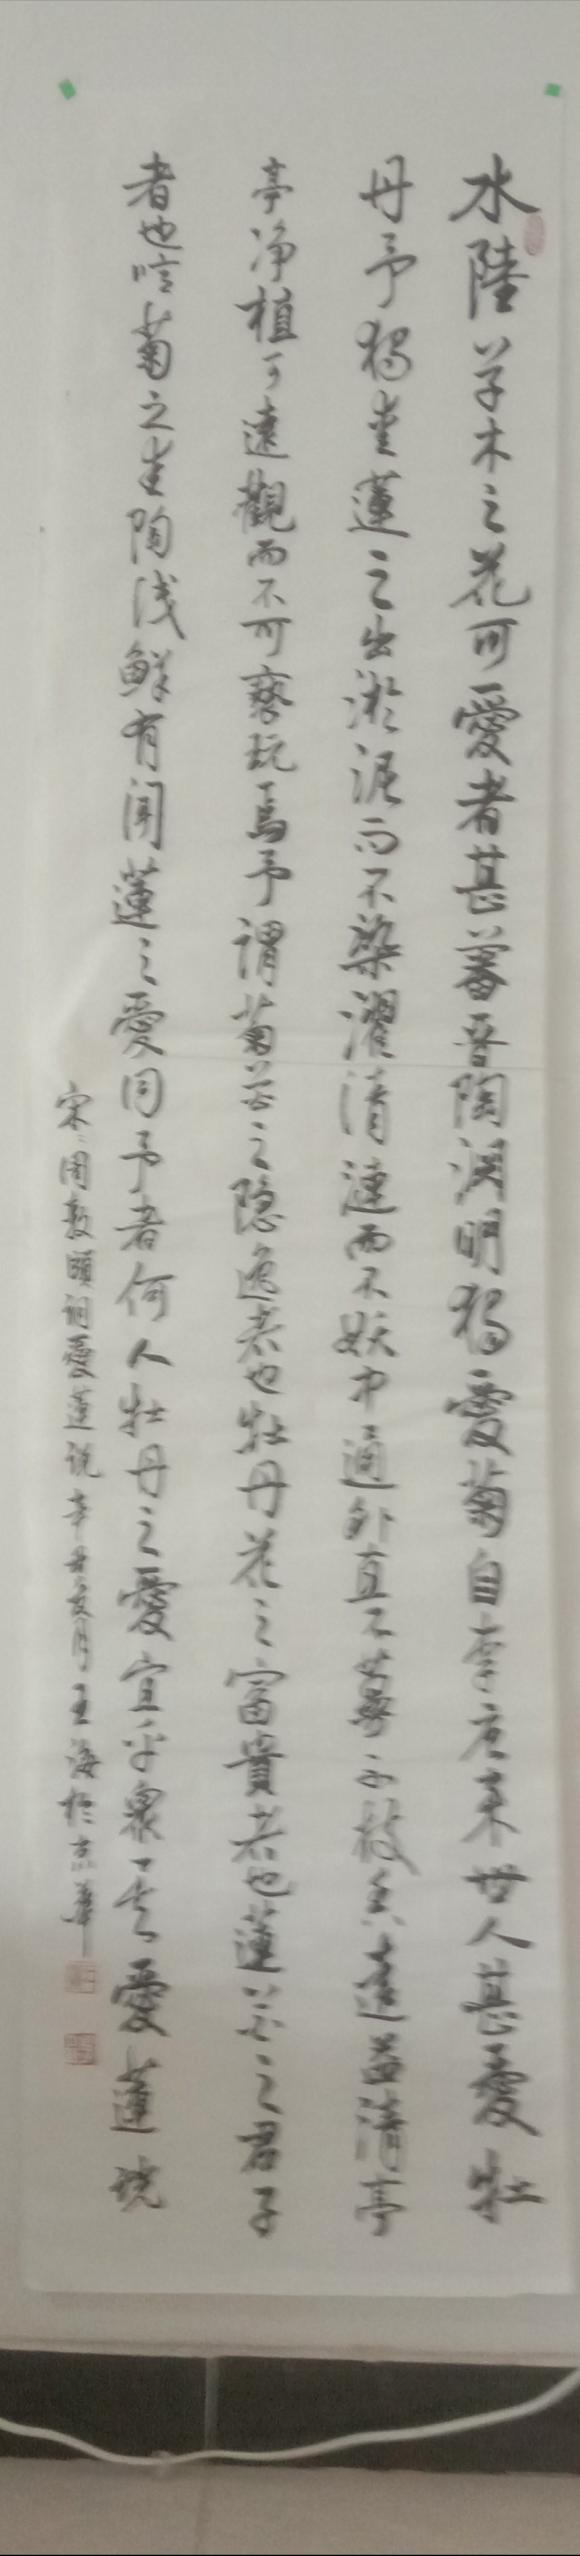 水陸草木之花可愛者甚蕃晋陶渊明獨愛菊自李唐来世人甚愛牡
丹予獨爱蓮之出淤泥而不染濯清漣而不妖中通外直不蔓不枝香遠益清亭
亭净植可遠觀而不可褻玩焉予謂菊花之隐逸者也牡丹花之富貴者也蓮花之君子
者也噫菊之爱陶後鲜有闻蓮之愛同予者何人牡丹之愛宜乎衆矣愛蓮说
宋周敦頤词愛蓮说辛丑夏月王海於京華